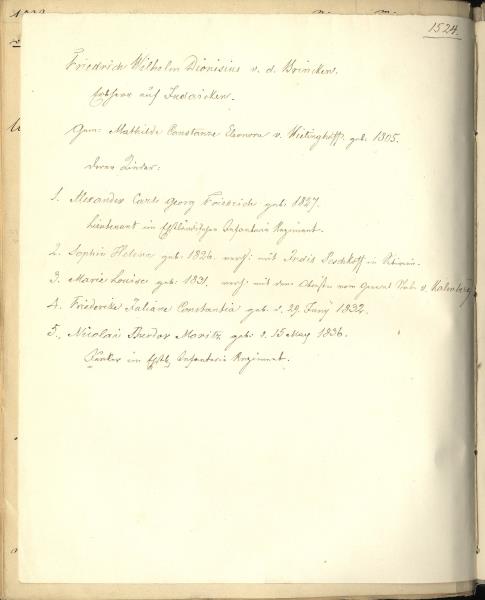 1524.
Friedrich Wilhelm Dionisius v. d. Brincken.
Erbherr auf Indaicken.
Gem: Mathilde Constanze Eleonora v. Vietinghoff: geb. 1805.
deren Kinder:
1. Alexander Carl Georg Friedrich geb. 1827.
Lieutenant im Ehstländischen Infanterie Regiment.
2. Sophie Helene geb: 1826. verh: mit in
3. Marie Louise geb: 1831. verh: mit dem Obersten vom General Stabe v. Kalenberg
4. Friederike Juliane Constantia geb. d. 29 Juny 1832.
5. Nicolai Theodor Moritz geb: d. 15 May 1836.
Junker im Ehstl. Infanterie Regiment.